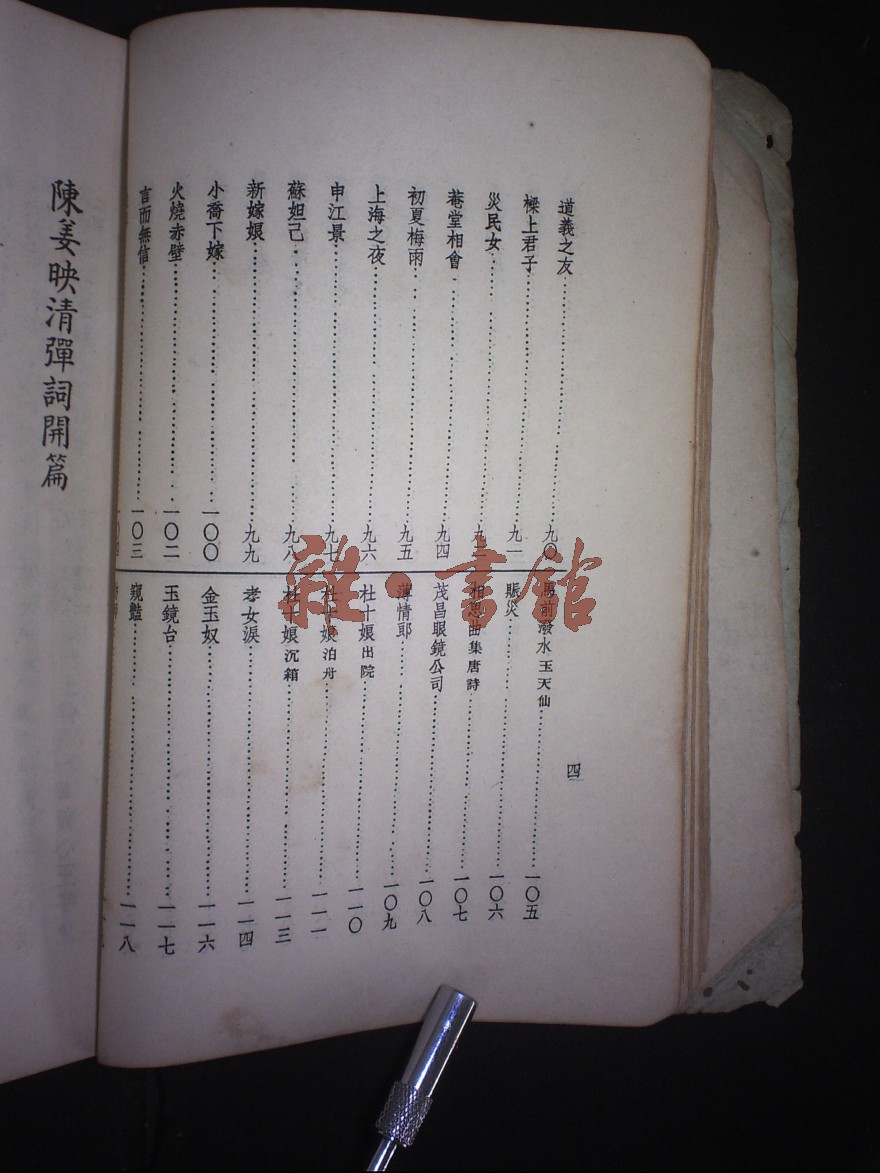 道義之友……九〇
樑上君子……九一
災民女……九
菴堂相會……九四
初夏梅雨……九五
上海之夜……九六
申江景……九七
蘇妲己……九八
新嫁娘……九九
小喬下嫁……一〇〇
火燒赤壁……一〇二
言而無信……一〇三
馬前潑水玉天仙……一〇五
賑災……一〇六
相思曲集唐詩……一〇七
茂昌眼鏡公司……一〇八
薄情郎……一〇九
杜十娘出院……一一〇
杜十娘泊舟……一一一
杜十娘沉箱……一一三
孝女淚……一一四
金玉奴……一一六
玉鏡台……一一七
窺豔……一一八
四
陳姜映清彈詞開篇
雜·書館